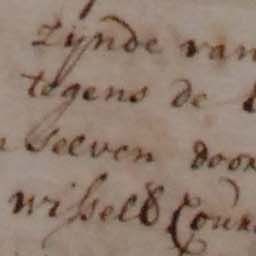 zijnde van
tegens de
selven door
wissels Cour